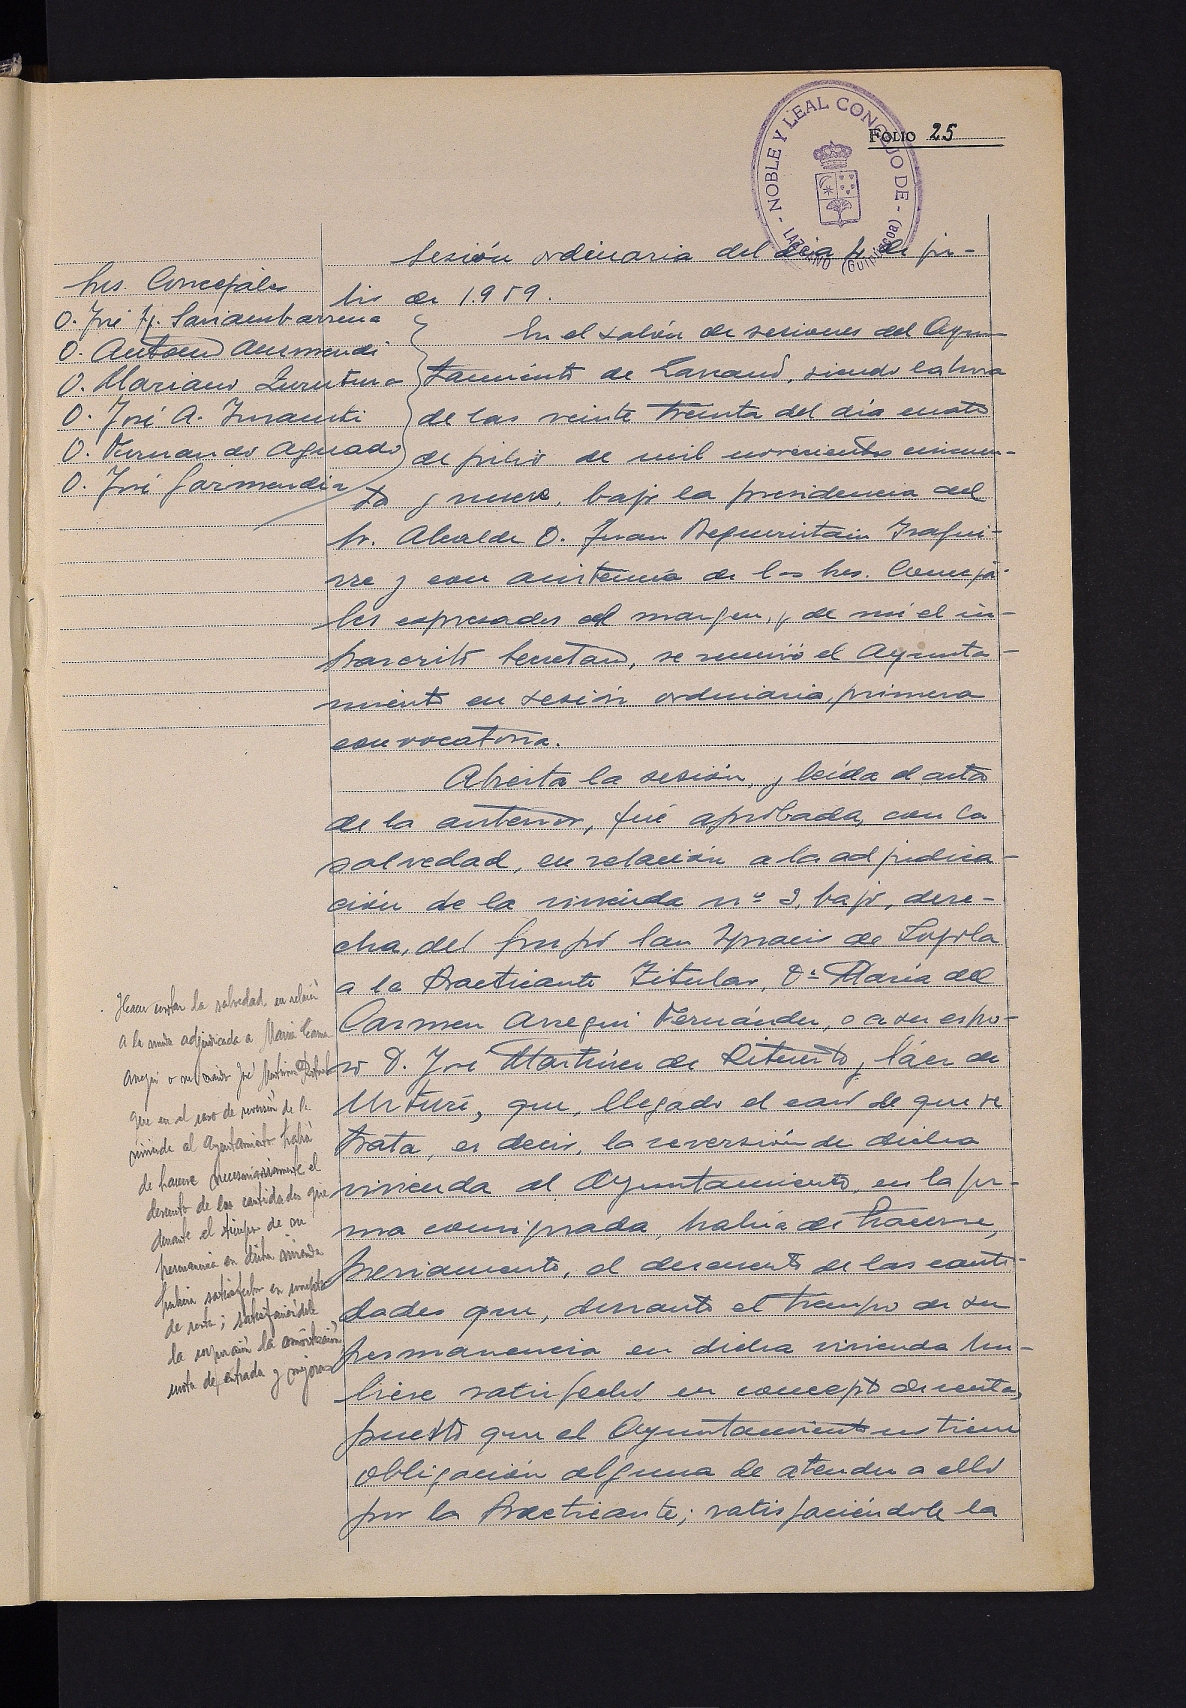 NOBLE Y LEAL CONCEJO DE
LAZCANO (Guipúzcoa)
FOLIO 25
Sesión ordinaria del día 4 de ju-
lio de 1.959.
Sres. Concejales
D. José
D. Antonio Aurmendi
D. Mariano
D. José A.
D. Fernando Aguado
D. José Garmendia
En el salón de sesiones del Ayun-
tamiento de Lazcano, siendo la hora
de las veinte treinta del día cuatro
de julio de mil novecientos cincuen-
ta y nueve, bajo la presidencia del
Sr. Alcalde D. Juan Aseguinolaza
rre y con asistencia de los Sres. Conceja-
les expresados al margen, y de mi el in-
frascrito Secretario, se reunió el Ayunta-
miento en sesión ordinaria, primera
convocatoria.
Abierta la sesión, y leída el acta
de la anterior, fué aprobada, con la
salvedad, en relación a la adjudica-
ción de la vivienda nº 3, bajo, dere-
cha, del Grupo San Ignacio de Loyola
a la Practicante Titular, Dª María del
Carmen Arregui Fernández, o a su espo-
so D. José Martínez de y Sáez de
Urturi, que, llegado el caso de que se
trata, es decir, la reversión de dicha
vivienda al Ayuntamiento, en la for-
ma consignada, habría de hacerse,
previamente, el descuento de las canti-
dades que, durante el tiempo de su
permanencia en dicha vivienda hu-
biese satisfecho en concepto de renta,
puesto que el Ayuntamiento no tiene
obligación alguna de atender a ello
por la Practicante; satisfaciéndole la
Hacer constar la salvedad en relación
a la vivda adjudicada a María Carme
Arregui o su marido José Martínez
que en el caso de reversión de la
vivienda al Ayuntamiento habrá
de hacerse necesariamente el
descuento de las cantidades que
durante el tiempo de su
permanencia en dicha vivienda
hubiera satisfecho en concepto
de renta; satisfaciéndole
la corporación la amortización
cuota de entrada y mejoras